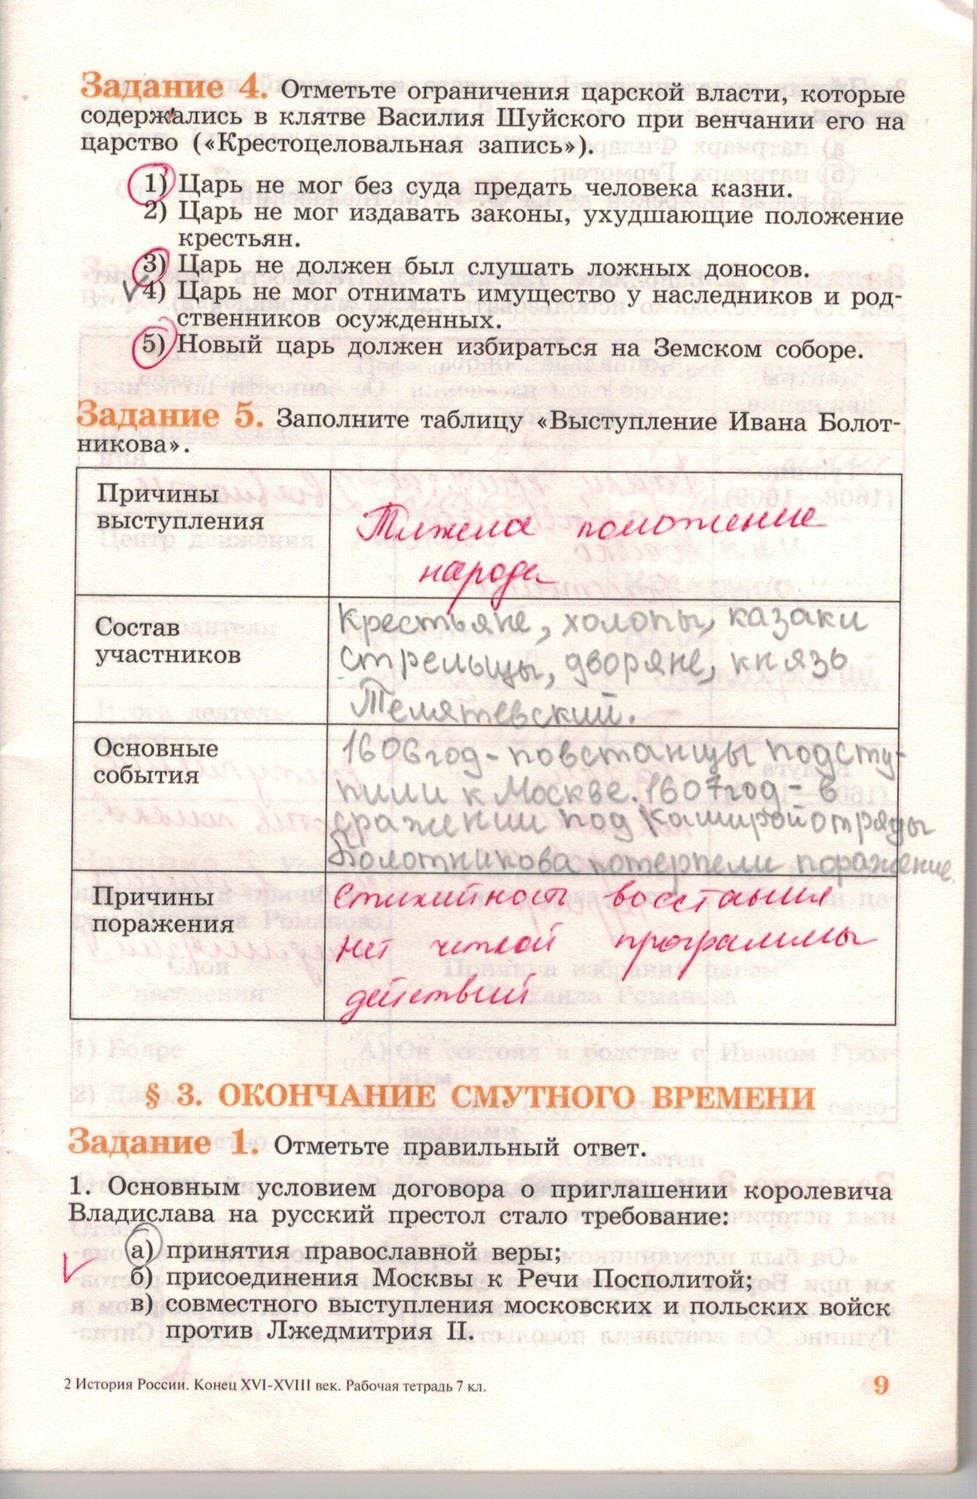 Задание 4. Отметьте ограничения царской власти, которые
содержались в клятве Василия Шуйского при венчании его на
царство («Крестоцеловальная запись»).
1) Царь не мог без суда предать человека казни.
2) Царь не мог издавать законы, ухудшающие положение
крестьян.
3) Царь не должен был слушать ложных доносов.
4) Царь не мог отнимать имущество у наследников и род-
ственников осужденных.
5) Новый царь должен избираться на Земском соборе.
Задание 5. Заполните таблицу «Выступление Ивана Болот-
никова».
Причины
выступления
Тяжела положение
народа
Состав
участников
Крестьяне, холопы, казаки
стрельцы, дворяне, князь
Телятевский.
Основные
события
1606 год - повстанцы подсту-
пили к Москве. 1607 год - в
сражении под Каширой отряды
Болотникова потерпели поражение.
Причины
поражения
Стихийность восстания
нет четкой программы
действий
§ 3. ОКОНЧАНИЕ СМУТНОГО ВРЕМЕНИ
Задание 1. Отметьте правильный ответ.
1. Основным условием договора о приглашении королевича
Владислава на русский престол стало требование:
а) принятия православной веры;
б) присоединения Москвы к Речи Посполитой;
в) совместного выступления московских и польских войск
против Лжедмитрия II.
2 История России. Конец XVI-XVIII век. Рабочая тетрадь 7 кл.
9